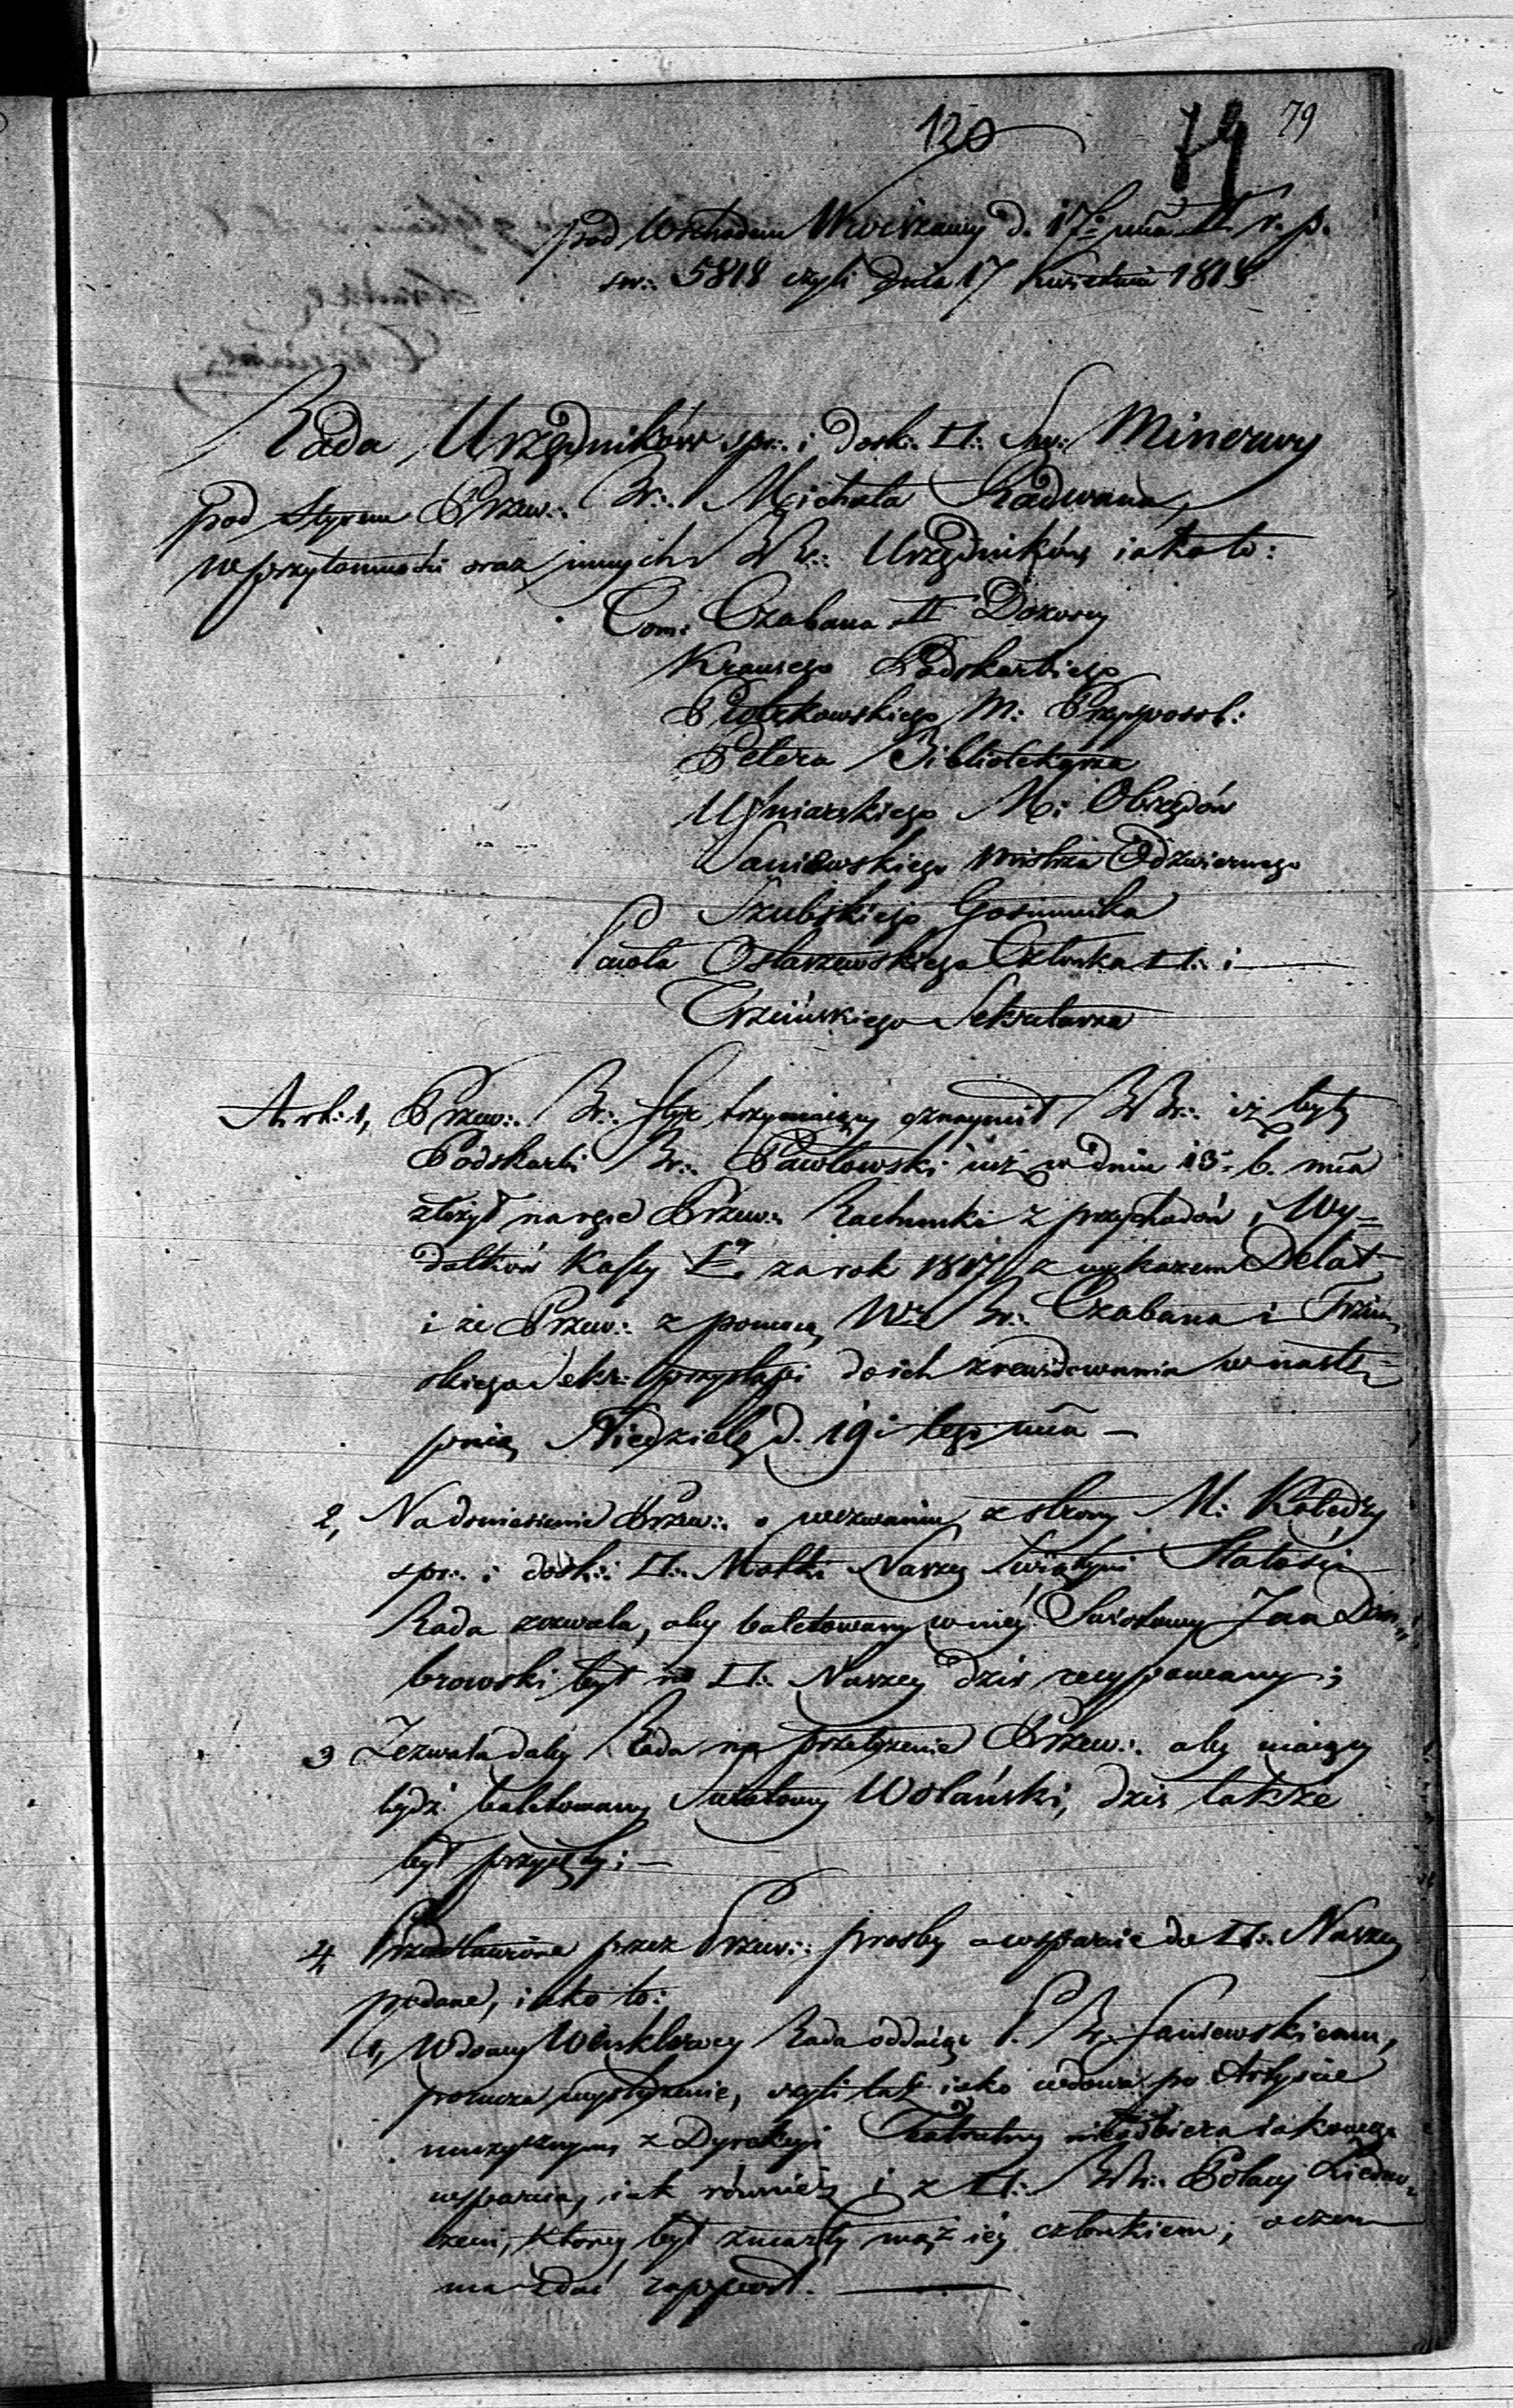 120 79 79
pod Wschodem Warszawy d. 17: mca II r. p.
sw: 5818 czyli dnia 17 Kwietnia 1818
Rada Urzędników spr: i dosk: □: Sw: Minerwy
pod styrem Przew:. Br:. Michała Radwana,
w przytomności oraz innych BBr:. Urzędników, iako to:
Com: Czabana II Dozorcy
Krausego Podskarbiego
Piotrkowskiego M: Przysposob:
Petera Bibliotekarza
M: Obrzędów
Janiewskiego mistrza Odzwiernego
Szubskiego Gosiennika
Ostaszewskiego Członka □:. i
Trzcińskiego Sekretarza
Art: 1, Przew:. Br:. Styr trzymaiący oznaymił BBr:. iż były
Podskarbi Br:. Pawłowski iuż w dniu 13: b. mca
złożył na ręce Przew:. Rachunki z przychodów i Wy=
datków Kassy za rok 1817 z wykazem Delat
i że Przew:. z pomocą Br:. Czabana i Trzciń,
skiego Sekr: przystąpi do ich zrewidowania w nastę=
pnią Niedzielę d. 19: tego mca —
2, Na doniesienie Przew:. o wezwaniu z strony M: Katedry
spr:. i dosk:. □:. Matki Naszey Swiątyni Stałości
Rada zezwala, aby baletowany w niey Swiatowy Jan Dom„
browski był w □:. Naszey dziś recypowany;
3 Zezwala daley Rada na przełożenie Przew:. aby maiący
bydź baletowany Swiatowy Wolański, dziś także
był przyięty; —
4, Przedstawione przez Przew:. prosby o wsparcie do □:. Naszey
podane, iako to:
1, Wdowy Winklerowey Rada oddaiąc P. Br:. Janiewskiemu,
porucza wyśledzenie, czyli taż iako wdowa po Artyście
muzycznym z Dyrekcyi Teatralney nieodbiera iakowego
wsparcia, iak również i z □:. BBr:. Polacy Ziedno=
czeni, ktorey był zmarły mąż iey członkiem; o czem
ma zdać rapport. —